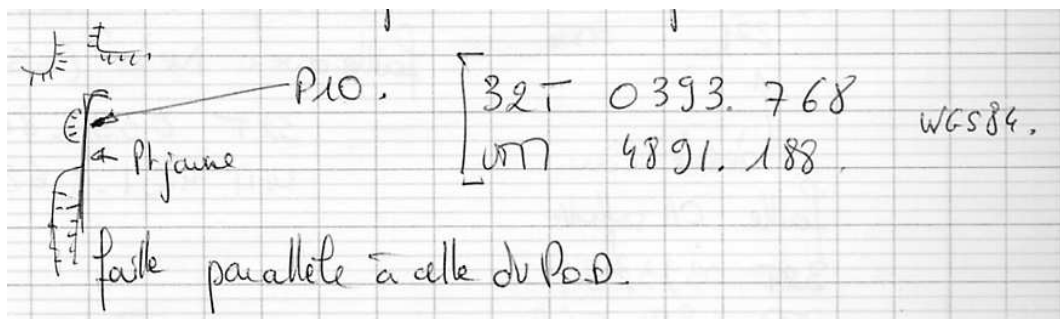 P10. [32T 0393.768
UTM 4891.188. WGS84.
Pt jaune
faille parallèle à celle du P.D.D.